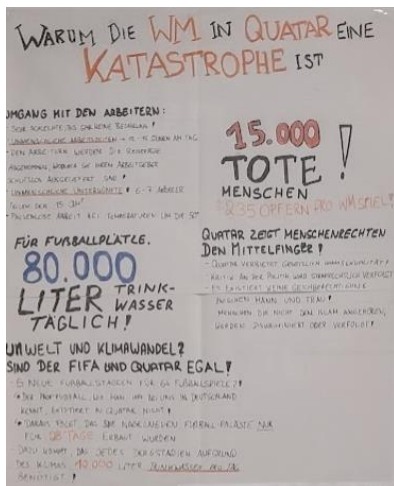 WARUM DIE WM IN QUATAR EINE
KATASTROPHE IST
UMGANG MIT DEN ARBEITERN:
- SEHR SCHLECHTE BIS GAR KEINE BEZAHLUNG!
- UNMENSCHLICHE ARBEITSZEITEN STUNDEN AM TAG
- DEN ARBEITERN WERDEN DIE
ABGENOMMEN, WODURCH SIE IHREM ARBEITGEBER
SCHUTZLOS AUSGELIEFERT SIND!
- UNMENSCHLICHE UNTERKÜNFTE! 6-7 ARBEITER
TEILEN SICH
- PAUSENLOSE ARBEIT BEI TEMPERATUREN UM DIE
15.000
TOTE!
MENSCHEN
235 OPFERN PRO WM SPIEL!
FÜR FUßBALLPLÄTZE.
80.000
LITER TRINK-
WASSER
TÄGLICH!
QUATAR ZEIGT MENSCHENRECHTEN
DEN MITTELFINGER!
- QUATAR VERBIETET GESETZLICH HOMOSEXUALITÄT!
- KRITIK AN DER POLITIK WIRD STRAFRECHTLICH VERFOLGT
- ES EXISTIERT KEINE GLEICHBERECHTIGUNG
ZWISCHEN MANN UND FRAU!
MENSCHEN DIE NICHT DEN ISLAM ANGEHÖREN,
WERDEN DISKRIMINIERT ODER VERFOLGT!
UMWELT UND KLIMAWANDEL?
SIND DER FIFA UND QUATAR EGAL!
- 6 NEUE FUßBALLSTADIEN FÜR 64 FUßBALLSPIELE?!
DER PROFIFUßBALL, WIE MAN IHN BEI UNS IN DEUTSCHLAND
KENNT, EXISTIERT IN QUATAR NICHT!
DARAUS FOLGT, DAS DIE NAGELNEUEN FUßBALL PALÄSTE NUR
FÜR 28 TAGE ERBAUT WURDEN
- DAZU KOMMT, DAS JEDES STADIEN AUFGRUND
DES KLIMAS 10.000 LITER TRINKWASSER
BENÖTIGT!